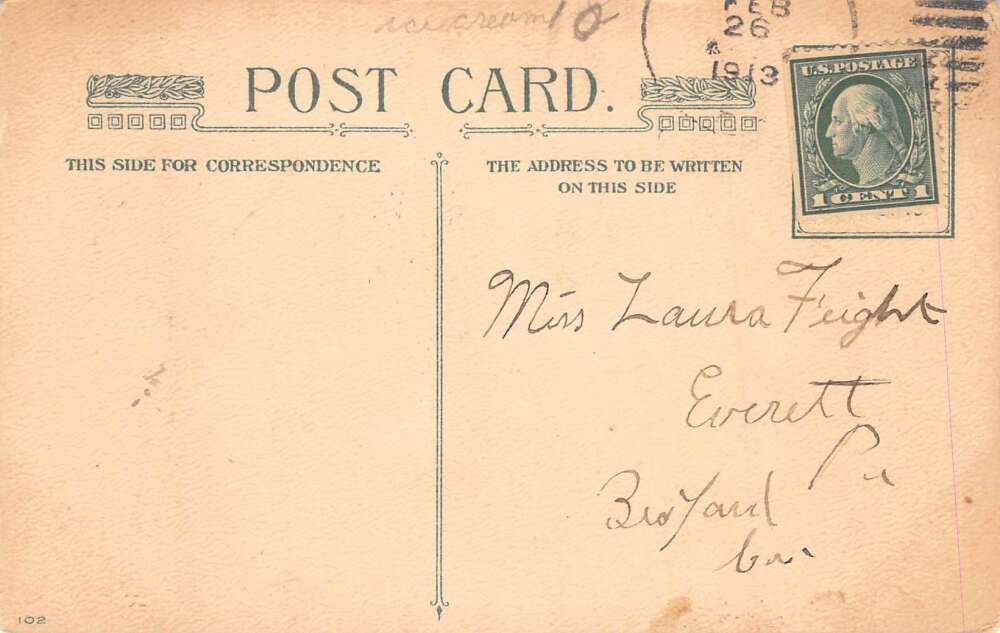 ice cream 10
FEB
26
1913
U.S. POSTAGE
1 CENT 1
POST CARD.
THIS SIDE FOR CORRESPONDENCE
THE ADDRESS TO BE WRITTEN
ON THIS SIDE
Miss Laura Feight
Everett
Pa
Co.
102